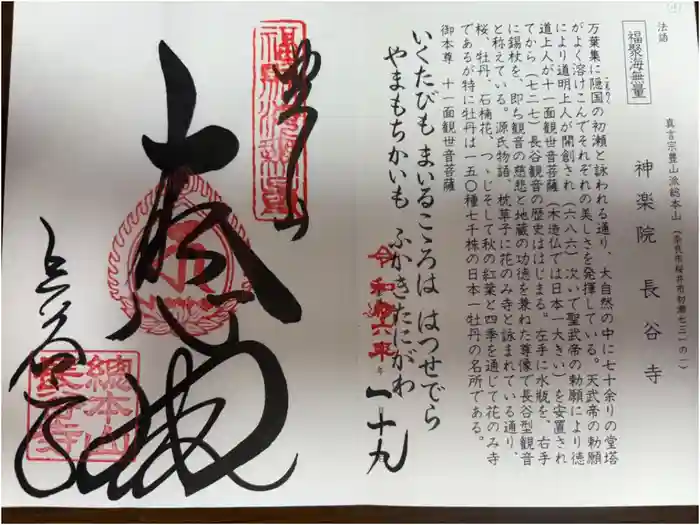 法語
福聚海無量
真言宗豊山派総本山(奈良市桜井市初瀬七三一の一)
神楽院 長谷寺
万葉集に隠国の初瀬と詠われる通り、大自然の中に七十余りの堂塔
がよく溶けこんでそれぞれの美しさを発揮している。天武帝の勅願
により道明上人が開創され(六八六)次いで聖武帝の勅願により徳
道上人が十一面観世音菩薩(木造仏では日本一大きい)を安置され
てから(七二七)長谷観音の歴史ははじまる。左手に水瓶を、右手
に錫杖を、即ち観音の慈悲と地蔵の功徳を兼ねた尊像で長谷型観音
と称えている。源氏物語、枕草子に花のみ寺と詠まれている通り、
桜、牡丹、石楠花、つゝじそして秋の紅葉と四季を通じて花のみ寺
であるが特に牡丹は一五〇種七千株の日本一牡丹の名所である。
御本尊 十一面観世音菩薩
いくたびも まいるこゝろは はつせでら
やまもちかいも ふかきたにがわ
令和六年 年 一 十九
豊山
福聚海無量
大悲閣
長谷寺
總本山
長谷寺